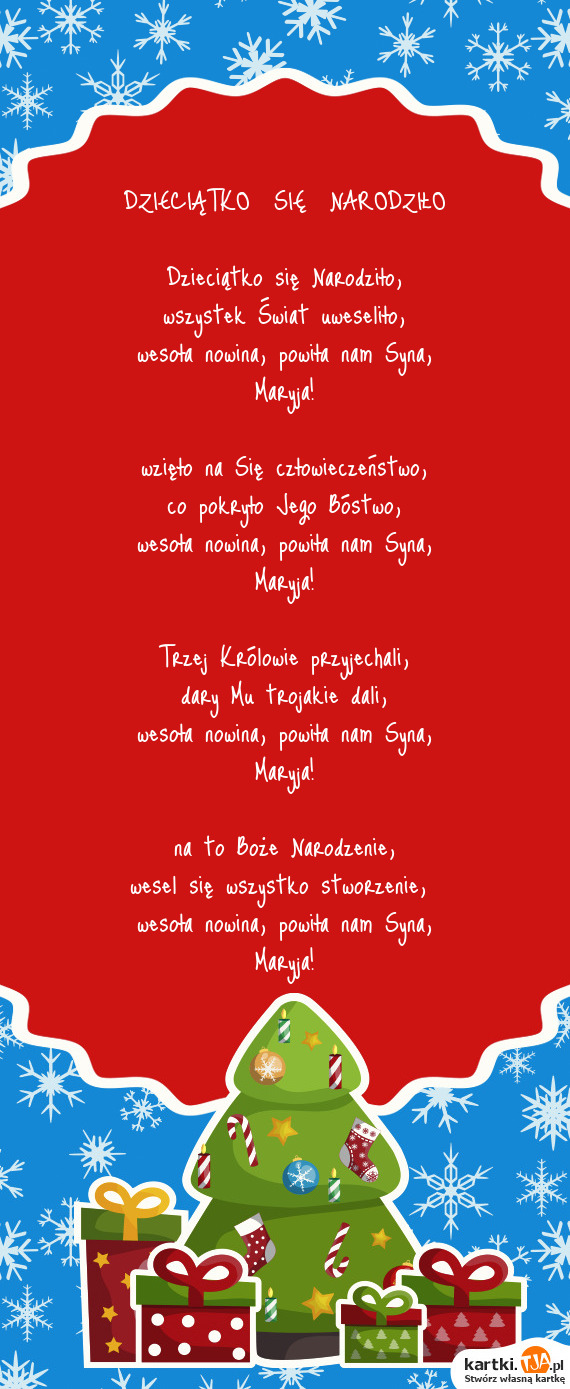 DZIECIĄTKO SIĘ NARODZIŁO
Dzieciątko się Narodziło,
wszystek Świat uweseliło,
wesoła nowina, powiła nam Syna,
Maryja!
wzięło na Się człowieczeństwo,
co pokryło Jego Bóstwo,
wesoła nowina, powiła nam Syna,
Maryja!
Trzej Królowie przyjechali,
dary Mu trojakie dali,
wesoła nowina, powiła nam Syna,
Maryja!
na to Boże Narodzenie,
wesel się wszystko stworzenie,
wesoła nowina, powiła nam Syna,
Maryja!
kartki.TJA.pl
Stwórz własną kartkę